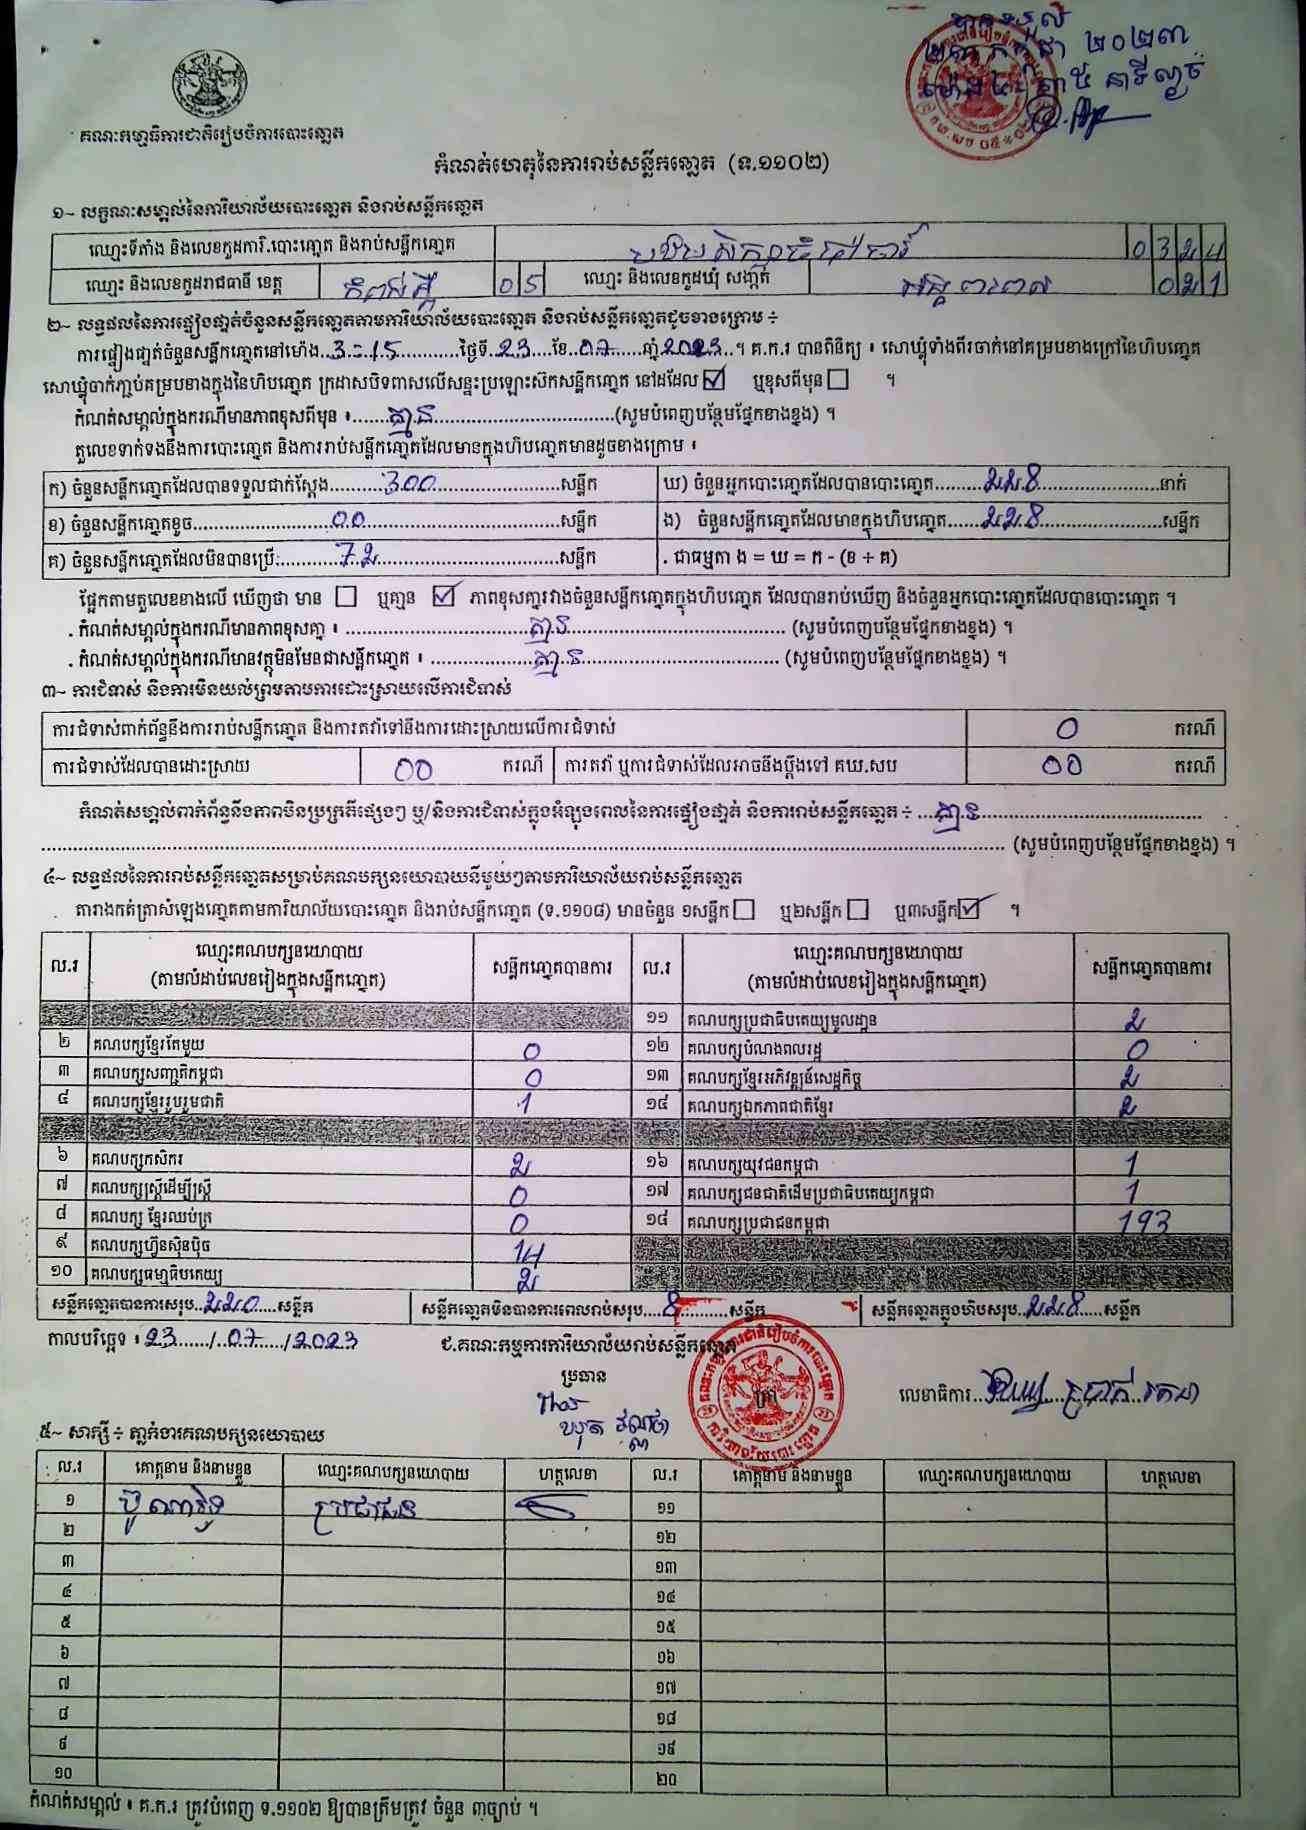 ២០២៣
គណៈកម្មាធិការជាតិរៀបចំការបោះឆ្នោត
កំណត់ហេតុនៃការរាប់សន្លឹកឆ្នោត (ទ.១១០២)
១~ លក្ខណៈសម្គាល់នៃការិយាល័យបោះឆ្នោត និងរាប់សន្លឹកឆ្នោត
ឈ្មោះទីតាំង និងលេខកូដការិ.បោះឆ្នោត និងរាប់សន្លឹកឆ្នោត 0324
ឈ្មោះ និងលេខកូដរាជធានី ខេត្ត កំពង់ស្ពឺ 05 ឈ្មោះ និងលេខកូដឃុំ សង្កាត់ 021
២~ លទ្ធផលនៃការផ្ទៀងផ្ទាត់ចំនួនសន្លឹកឆ្នោតតាមការិយាល័យបោះឆ្នោត និងរាប់សន្លឹកឆ្នោតដូចខាងក្រោម ÷
ការផ្ទៀងផ្ទាត់ចំនួនសន្លឹកឆ្នោតនៅម៉ោង...3-15...ថ្ងៃទី...23...ខែ...07...ឆ្នាំ...2023...។ គ.ក.រ បានពិនិត្យ ៖ សោឃ្លុំទាំងពីរចាក់នៅគម្របខាងក្រៅនៃហិបឆ្នោត
សោឃ្លុំចាក់ភ្ជាប់គម្របខាងក្នុងនៃហិបឆ្នោត ក្រដាសបិទពាសលើសន្ទះប្រឡោះស៊កសន្លឹកឆ្នោត នៅដដែល ☑ ឬខុសពីមុន ☐ ។
កំណត់សម្គាល់ក្នុងករណីមានភាពខុសពីមុន ៖......គ្មាន......(សូមបំពេញបន្ថែមផ្នែកខាងខ្នង) ។
តួលេខទាក់ទងនឹងការបោះឆ្នោត និងការរាប់សន្លឹកឆ្នោតដែលមានក្នុងហិបឆ្នោតមានដូចខាងក្រោម ៖
ក) ចំនួនសន្លឹកឆ្នោតដែលបានទទួលជាក់ស្តែង......300......សន្លឹក ឃ) ចំនួនអ្នកបោះឆ្នោតដែលបានបោះឆ្នោត......228......នាក់
ខ) ចំនួនសន្លឹកឆ្នោតខូច......00......សន្លឹក ង) ចំនួនសន្លឹកឆ្នោតដែលមានក្នុងហិបឆ្នោត......228......សន្លឹក
គ) ចំនួនសន្លឹកឆ្នោតដែលមិនបានប្រើ......72......សន្លឹក . ជាធម្មតា ង = ឃ = ក - (ខ + គ)
ផ្អែកតាមតួលេខខាងលើ ឃើញថា មាន ☐ ឬគ្មាន ☑ ភាពខុសគ្នារវាងចំនួនសន្លឹកឆ្នោតក្នុងហិបឆ្នោត ដែលបានរាប់ឃើញ និងចំនួនអ្នកបោះឆ្នោតដែលបានបោះឆ្នោត ។
. កំណត់សម្គាល់ក្នុងករណីមានភាពខុសគ្នា ៖ ......គ្មាន...... (សូមបំពេញបន្ថែមផ្នែកខាងខ្នង) ។
. កំណត់សម្គាល់ក្នុងករណីមានវត្ថុមិនមែនជាសន្លឹកឆ្នោត ៖ ......គ្មាន...... (សូមបំពេញបន្ថែមផ្នែកខាងខ្នង) ។
៣~ ការជំទាស់ និងការមិនយល់ព្រមតាមការដោះស្រាយលើការជំទាស់
ការជំទាស់ពាក់ព័ន្ធនឹងការរាប់សន្លឹកឆ្នោត និងការតវ៉ាទៅនឹងការដោះស្រាយលើការជំទាស់ 0 ករណី
ការជំទាស់ដែលបានដោះស្រាយ 00 ករណី ការតវ៉ា ឬការជំទាស់ដែលអាចនឹងប្តឹងទៅ គឃ.សប 00 ករណី
កំណត់សម្គាល់ពាក់ព័ន្ធនឹងភាពមិនប្រក្រតីផ្សេងៗ ឬ/និងការជំទាស់ក្នុងអំឡុងពេលនៃការផ្ទៀងផ្ទាត់ និងការរាប់សន្លឹកឆ្នោត ÷ ...គ្មាន......
...... (សូមបំពេញបន្ថែមផ្នែកខាងខ្នង) ។
៤~ លទ្ធផលនៃការរាប់សន្លឹកឆ្នោតសម្រាប់គណបក្សនយោបាយនីមួយៗតាមការិយាល័យរាប់សន្លឹកឆ្នោត
តារាងកត់ត្រាសំឡេងឆ្នោតតាមការិយាល័យបោះឆ្នោត និងរាប់សន្លឹកឆ្នោត (ទ.១១០៨) មានចំនួន ១សន្លឹក ☐ ឬ២សន្លឹក ☐ ឬ៣សន្លឹក ☑ ។
ល.រ ឈ្មោះគណបក្សនយោបាយ សន្លឹកឆ្នោតបានការ ល.រ ឈ្មោះគណបក្សនយោបាយ សន្លឹកឆ្នោតបានការ
(តាមលំដាប់លេខរៀងក្នុងសន្លឹកឆ្នោត) (តាមលំដាប់លេខរៀងក្នុងសន្លឹកឆ្នោត)
១១ គណបក្សប្រជាធិបតេយ្យមូលដ្ឋាន 2
២ គណបក្សខ្មែរតែមួយ 0 ១២ គណបក្សបំណងពលរដ្ឋ 0
៣ គណបក្សសញ្ជាតិកម្ពុជា 0 ១៣ គណបក្សខ្មែរអភិវឌ្ឍន៍សេដ្ឋកិច្ច 2
៤ គណបក្សខ្មែររួបរួមជាតិ 1 ១៤ គណបក្សឯកភាពជាតិខ្មែរ 2
៦ គណបក្សកសិករ 2 ១៦ គណបក្សយុវជនកម្ពុជា 1
៧ គណបក្សស្ត្រីដើម្បីស្ត្រី 0 ១៧ គណបក្សជនជាតិដើមប្រជាធិបតេយ្យកម្ពុជា 1
៨ គណបក្ស ខ្មែរឈប់ក្រ 0 ១៨ គណបក្សប្រជាជនកម្ពុជា 193
៩ គណបក្សហ៊្វុនស៊ិនប៉ិច 14
១០ គណបក្សធម្មាធិបតេយ្យ 2
សន្លឹកឆ្នោតបានការសរុប..220....សន្លឹក សន្លឹកឆ្នោតមិនបានការពេលរាប់សរុប....8......សន្លឹក សន្លឹកឆ្នោតក្នុងហិបសរុប..228.....សន្លឹក
កាលបរិច្ឆេទ ៖ 23....../..07....../2023 ជ.គណៈកម្មការការិយាល័យរាប់សន្លឹកឆ្នោត
ប្រធាន
លេខាធិការ
៥~ សាក្សី ÷ ភ្នាក់ងារគណបក្សនយោបាយ
ល.រ គោត្តនាម និងនាមខ្លួន ឈ្មោះគណបក្សនយោបាយ ហត្ថលេខា ល.រ គោត្តនាម និងនាមខ្លួន ឈ្មោះគណបក្សនយោបាយ ហត្ថលេខា
១ ប៊ូ ណារិទ្ធ ប្រជាជន ១១
២ ១២
៣ ១៣
៤ ១៤
៥ ១៥
៦ ១៦
៧ ១៧
៨ ១៨
៩ ១៩
១០ ២០
កំណត់សម្គាល់ ៖ គ.ក.រ ត្រូវបំពេញ ទ.១១០២ ឱ្យបានត្រឹមត្រូវ ចំនួន ៣ច្បាប់ ។